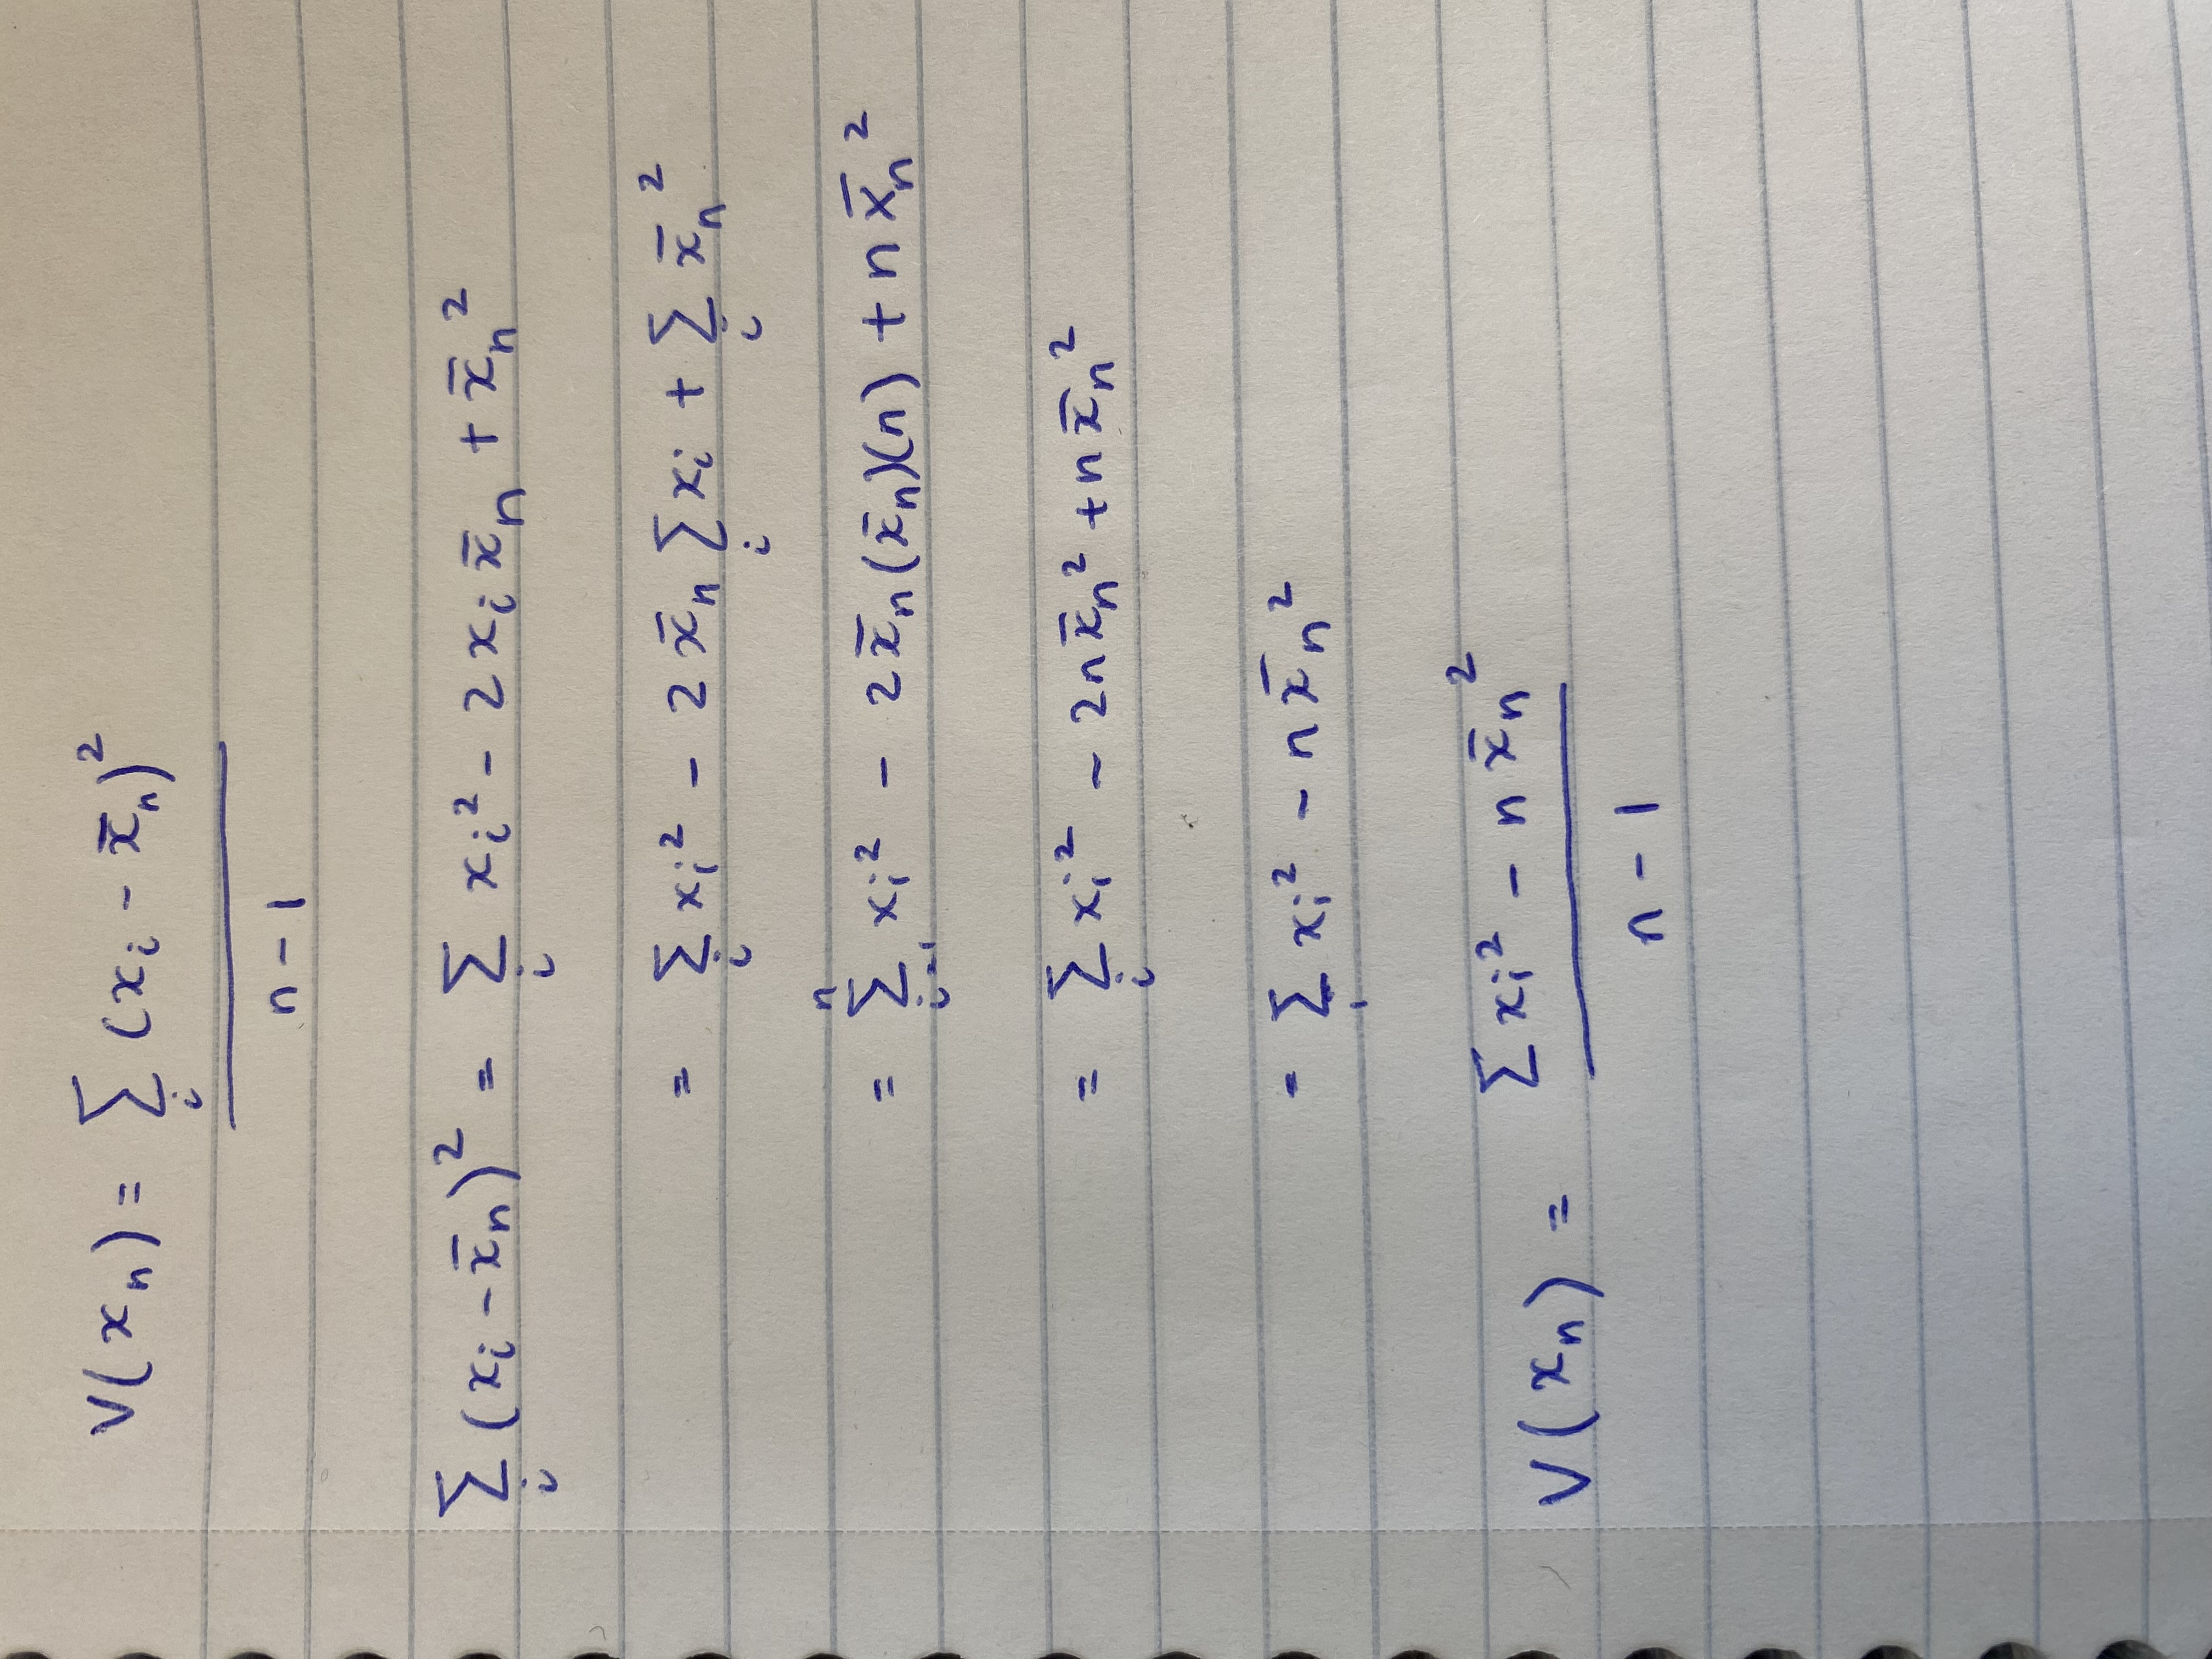 V(xₙ) = ∑ᵢ (xᵢ - x̄ₙ)²
n - 1
∑ᵢ (xᵢ - x̄ₙ)² = ∑ᵢ xᵢ² - 2xᵢx̄ₙ + x̄ₙ²
= ∑ᵢ xᵢ² - 2x̄ₙ ∑ᵢ xᵢ + ∑ᵢ x̄ₙ²
= ∑ᵢ₌₁ⁿ xᵢ² - 2x̄ₙ(x̄ₙ)(n) + nx̄ₙ²
= ∑ᵢ xᵢ² - 2nx̄ₙ² + nx̄ₙ²
= ∑ᵢ xᵢ² - nx̄ₙ²
V(xₙ) = ∑xᵢ² - nx̄ₙ²
n - 1